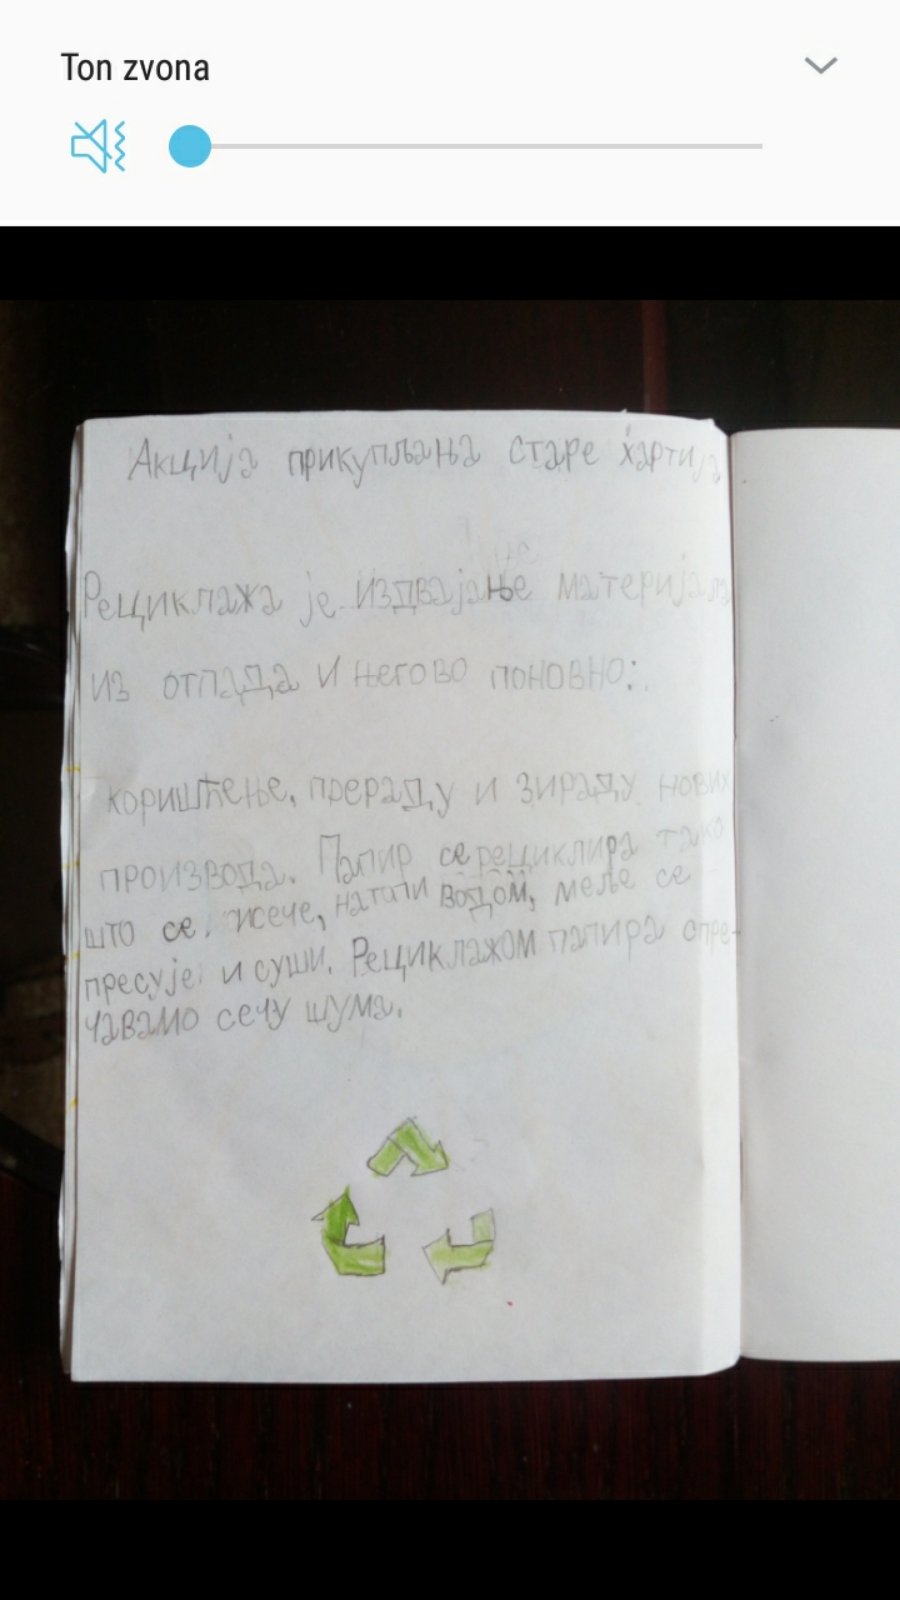 Ton zvona
Акција прикупљања старе хартија
Рециклажа је издвајање материјала
из отпада и његово поновно:
коришћење, прераду и зираду нових
производа. Папир се рециклира тако
што се жсече, натапи водом, меље се
пресује и суши. Рециклажом папира спре-
чавамо сечу шума.